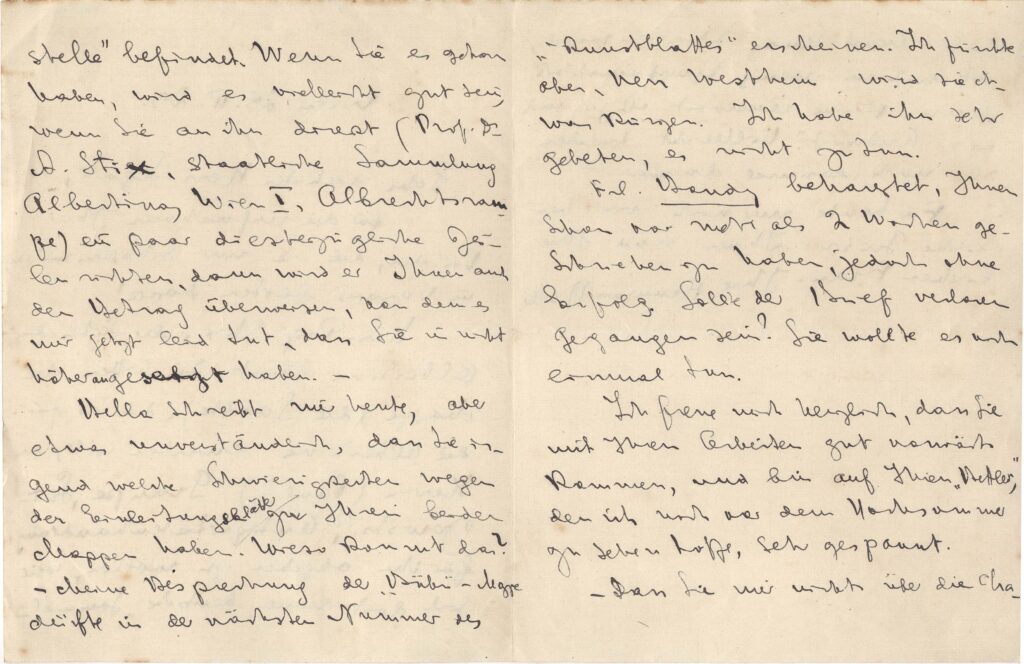 stelle" befindet. Wenn Sie es getan
haben, wird es vielleicht gut sein,
wenn Sie an ihn direkt (Prof. Dr
A. Stix, Staatliche Sammlung
Albertina, Wien I, Albrechtsram-
pe) ein paar diesbezügliche Zei-
len richten, dann wird er Ihnen auch
den Betrag überweisen, von dem es
mir jetzt leid tut, dass Sie ihn nicht
höher angesetzt haben. –
Bella schreibt mir heute, aber
etwas unverständlich, dass Sie ir-
gend welche Schwierigkeiten wegen
der Einleitungsblätter zu Ihren beiden
Mappen haben. Wieso kommt das?
– Meine Besprechung der Bübü-Mappe
dürfte in der nächsten Nummer des
„Kunstblattes" erscheinen. Ich fürchte
aber, Herr Westheim wird sie et-
was kürzen. Ich habe ihn sehr
gebeten, es nicht zu tun.
Frl. behauptet, Ihnen
schon vor mehr als 2 Wochen ge-
schrieben zu haben, jedoch ohne
Erfolg. Sollte der Brief verloren
gegangen sein? Sie wollte es noch
einmal tun.
Ich freue mich herzlich, dass Sie
mit Ihren Arbeiten gut vorwärts
kommen, und bin auf Ihren „Bettler",
den ich noch vor dem Hochsommer
zu sehen hoffe, sehr gespannt.
– Dass Sie mir nichts über die Cha-